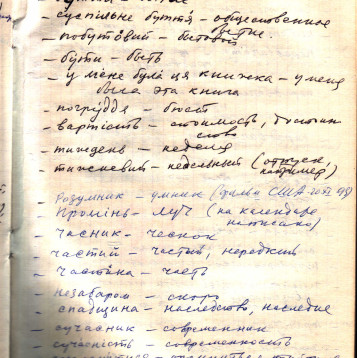 - суспільне буття - общественное
бытие.
- побутовий - бытовой
- бути - быть
- у мене була ця книжка - у меня
была эта книга
- погруддя - бюст
- вартість - стоимость, достоин
ство
- тиждень - неделя
- тижневий - недельный (отпуск,
например)
- Розумник - умник (
- Промінь - луч (на календаре
написано)
- часник - чеснок
- частий - частый, нередкий
- частина - часть
- незабаром - скоро
- спадщина - наследство, наследие
- сучасник - современник
- сучасність - современность